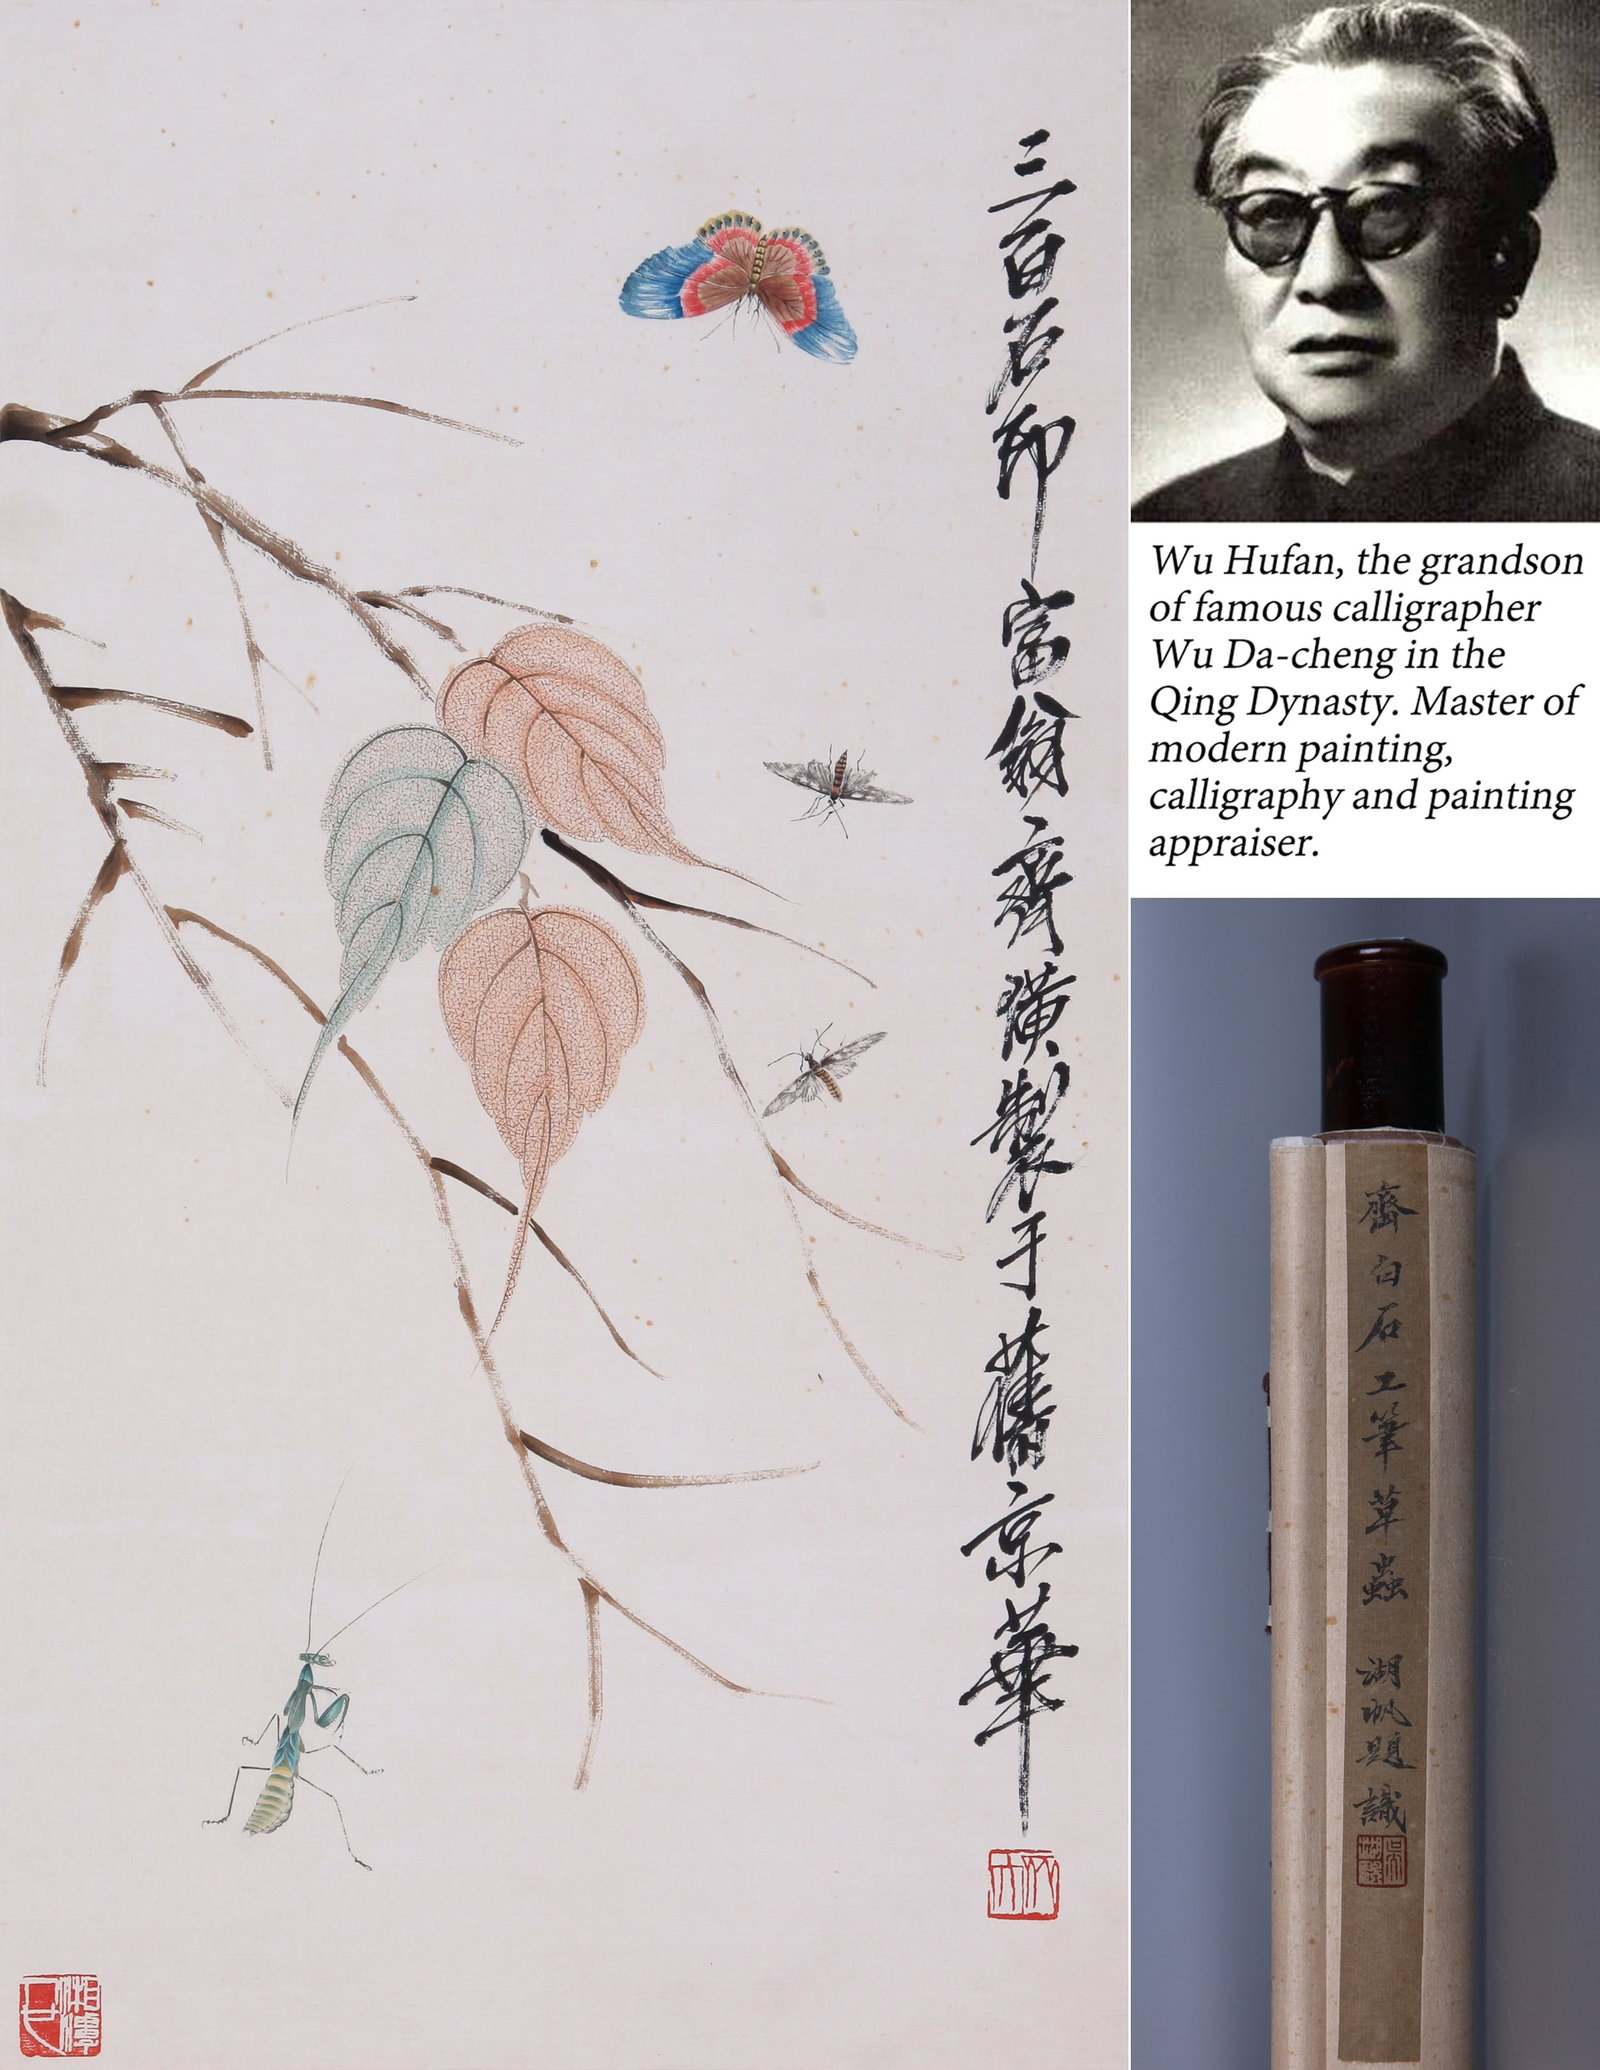 三百石印富翁齊璜製于舊京華
Wu Hufan, the grandson
of famous calligrapher
Wu Da-cheng in the
Qing Dynasty. Master of
modern painting,
calligraphy and painting
appraiser.
齊白石工筆草蟲 湖帆題識
湘潭人